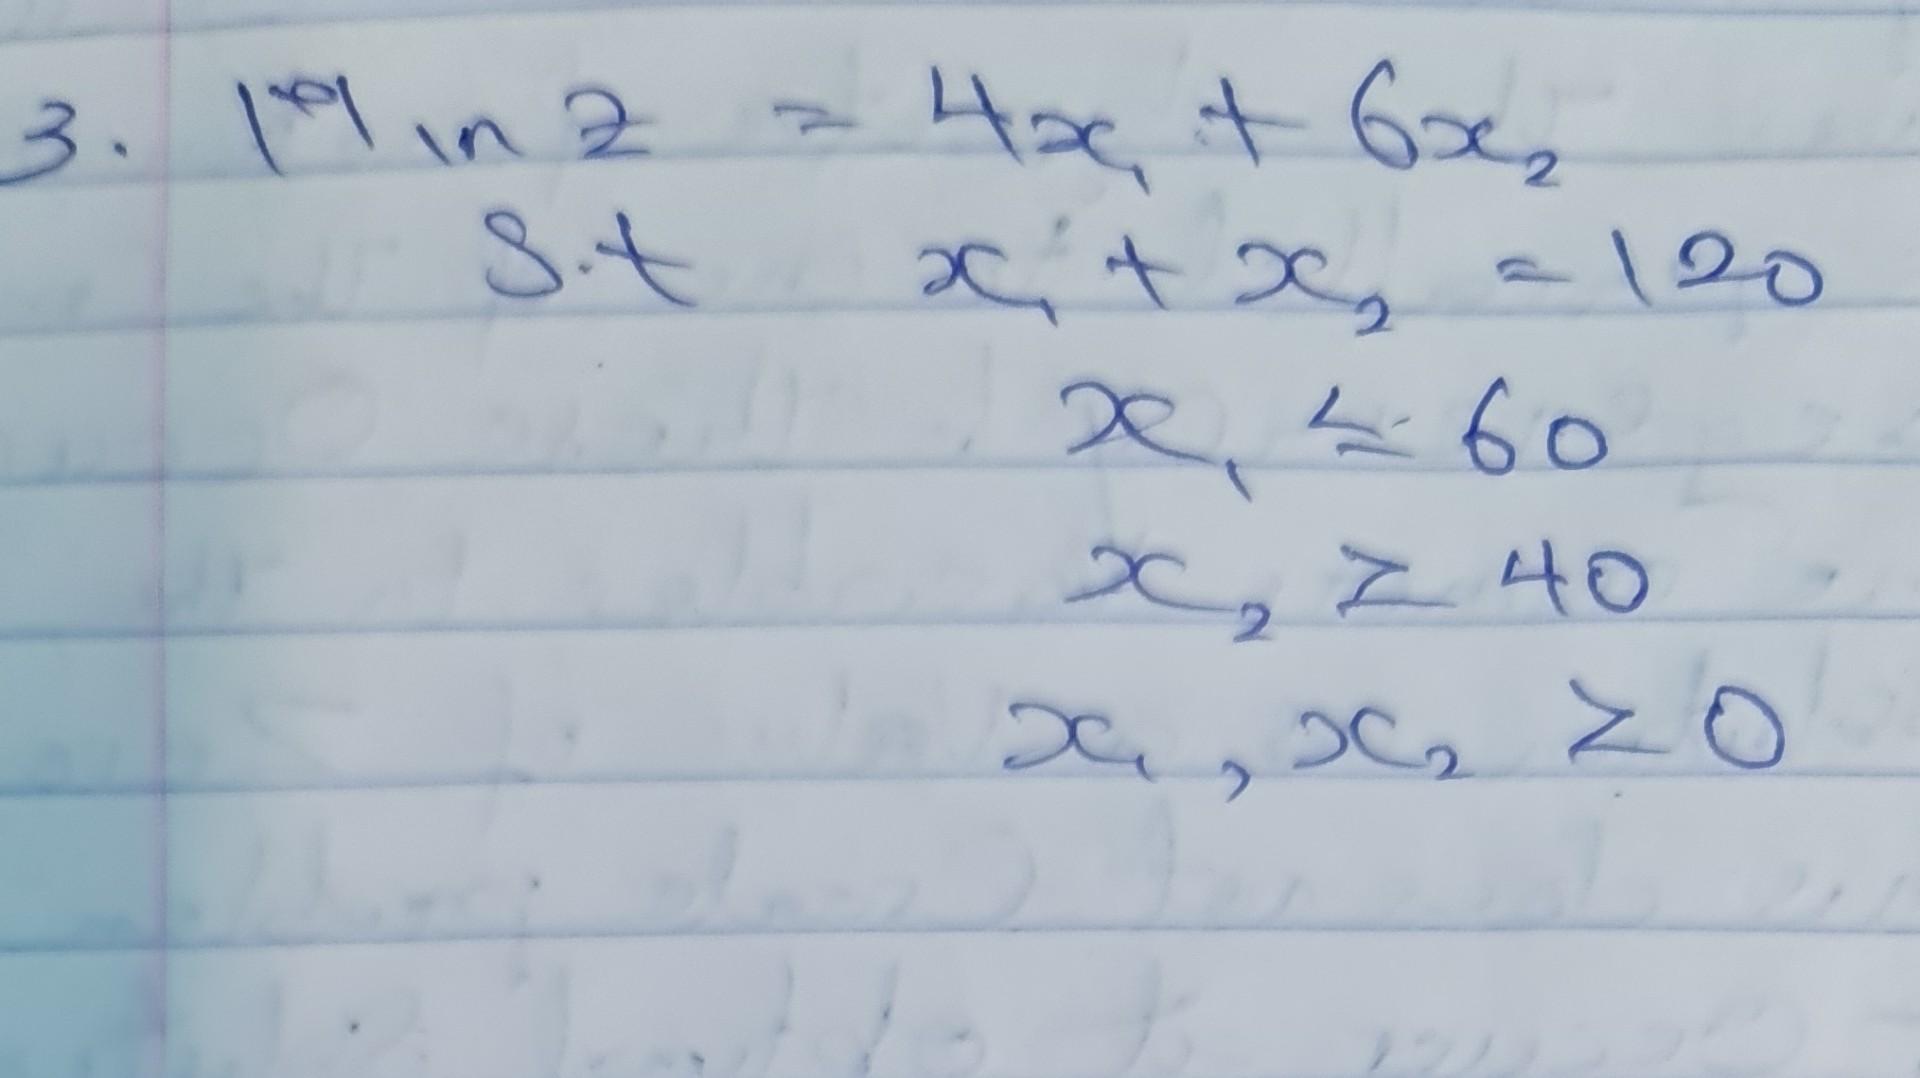 3. Min Z = 4x₁ + 6x₂
S.t x₁ + x₂ = 120
x₁ ≤ 60
x₂ ≥ 40
x₁, x₂ ≥ 0